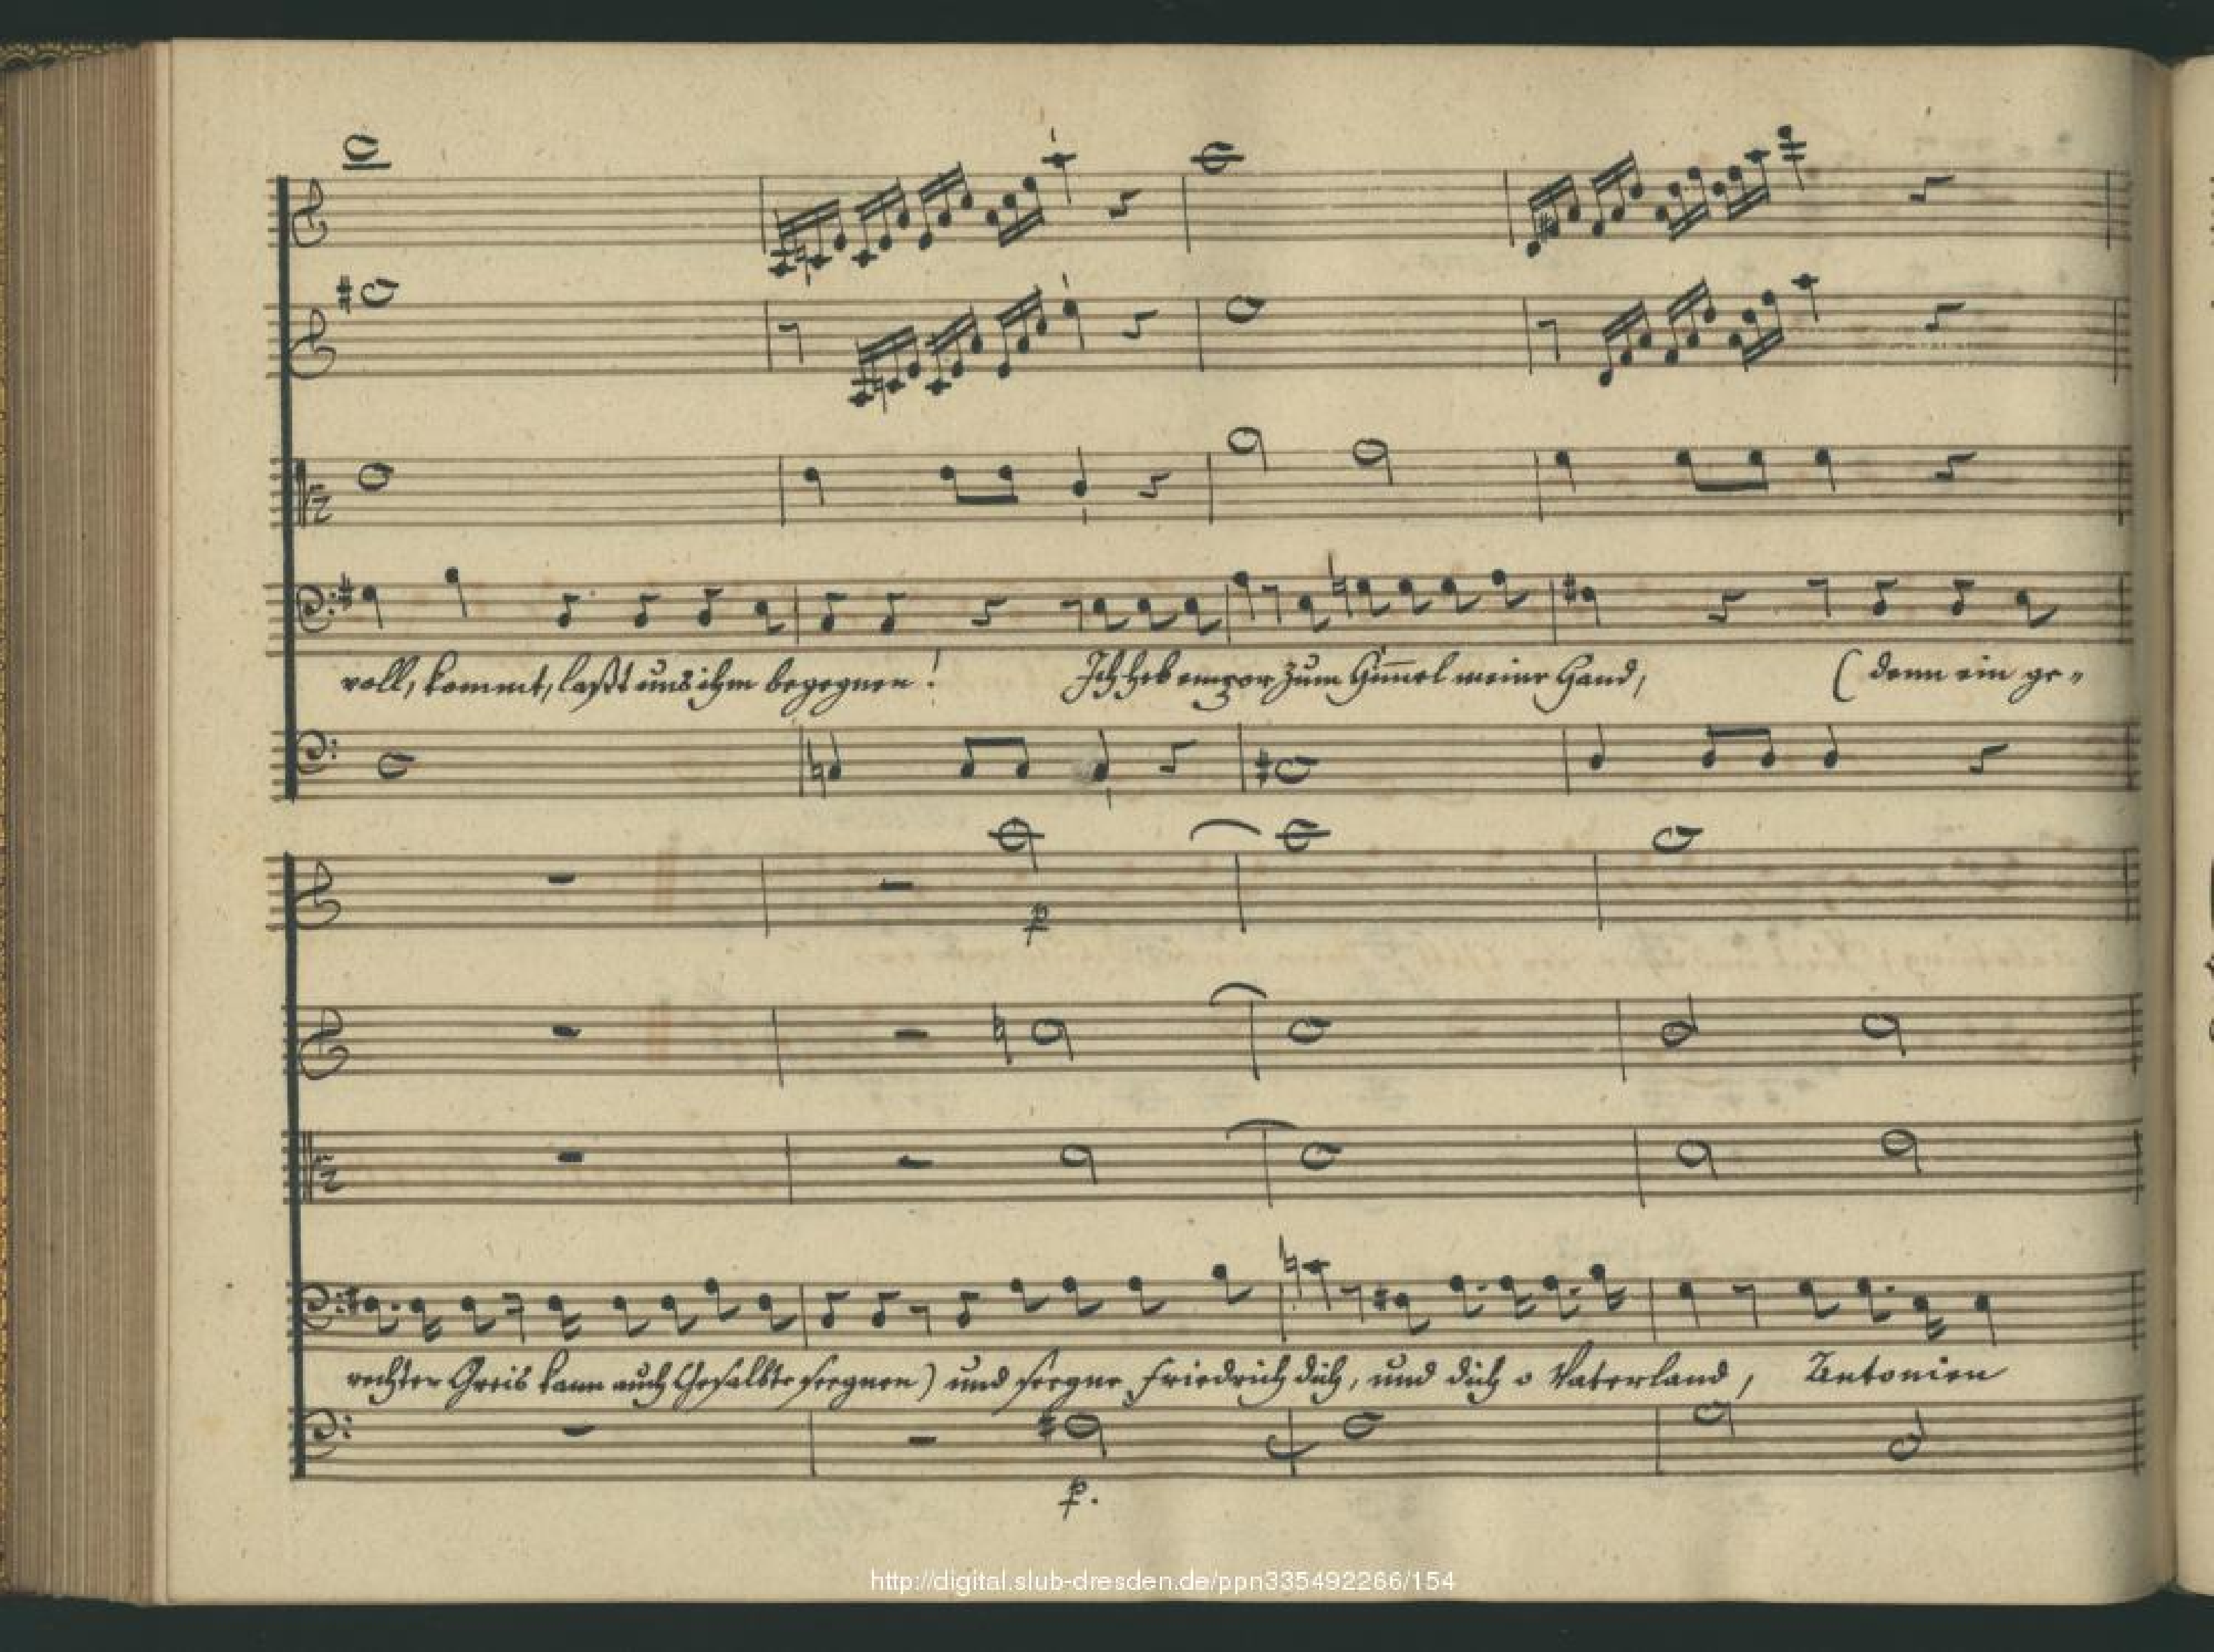 voll, kommt, laßt uns ihm begegnen! Ich heb empor zum Him̅el meine Hand, ( denn ein ge-
p
rechter Greis kann auch Gesalbte seegnen) und seegne Friedrich dich, und dich o Vaterland, Antonien
p.
http://digital.slub-dresden.de/ppn335492266/154